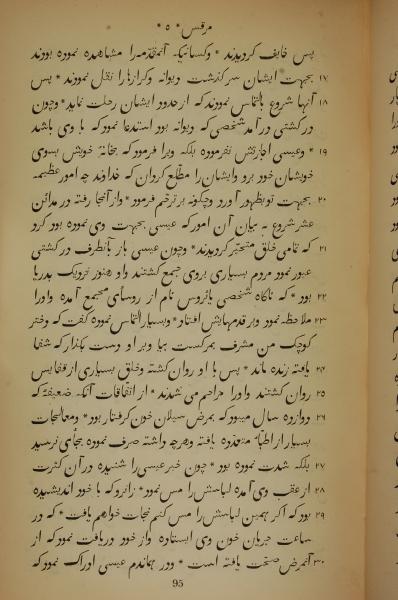 مرقس * ۵ *
پس خایف کردیدند * وکسانیکه آنمقدمه‌را مشاهده نموده بودند
۱۷ بجهت ایشان سرکذشت دیوانه وکرازهارا نقل نمودند * پس
۱۸ آنها شروع بالتماس نمودند که از حدود ایشان رحلت نماید * وچون
در کشتی در آمد شخصی که دیوانه بود استدعا نمود که با وی باشد
۱۹ * وعیسی اجازتش نفرموده بلکه ویرا فرمود که بخانهٔ خویش بسوی
خویشان خود برو وایشان را مطلع کردان که خداوند چه امور عظیمه
۲۰ بجهت تو بظهور آورد وچکونه بر تو ترحم فرمود * واز آنجا رفته در مدائن
عشر شروع به بیان آن امور که عیسی بجهت وی نموده بود کرد
۲۱ که تمامی خلق متحیر کردیدند * وچون عیسی باز بآنطرف در کشتی
عبور نمود مردم بسیاری بروی جمع کشتند واو هنوز نزدیک بدریا
۲۲ بود * که ناکاه شخصی یائروس نام از روسای مجمع آمده واورا
۲۳ ملاحظه نمود وبر قدمهایش افتاد * وبسیار التماس نموده کفت که دختر
کوچک من مشرف بمرکست بیا وبر او دست بکذار که شفا
۲۴ یافته زنده ماند * پس با او روان کشته وخلق بسیاری از قفایش
۲۵ روان کشتند واورا مزاحم می شدند * از اتفاقات آنکه ضعیفهٔ که
۲۶ دوازده سال میبود که بمرض سیلان خون کرفتار بود * ومعالجات
بسیار از اطبّاء متعدده یافته وهرچه داشته صرف نموده بجای نرسید
۲۷ بلکه شدت نموده بود * چون خبر عیسی را شنیده در آن کثرت
۲۸ از عقب وی آمده لباسش را مس نمود * زانرو که با خود اندیشیده
۲۹ بود که اکر همین لباسش را مس کنم نجات خواهم یافت * که در
ساعت جریان خون وی ایستاده واز خود دریافت نمود که از
۳۰ آنمرض صحت یافته است * ودر هماندم عیسی ادراک نمود که
95